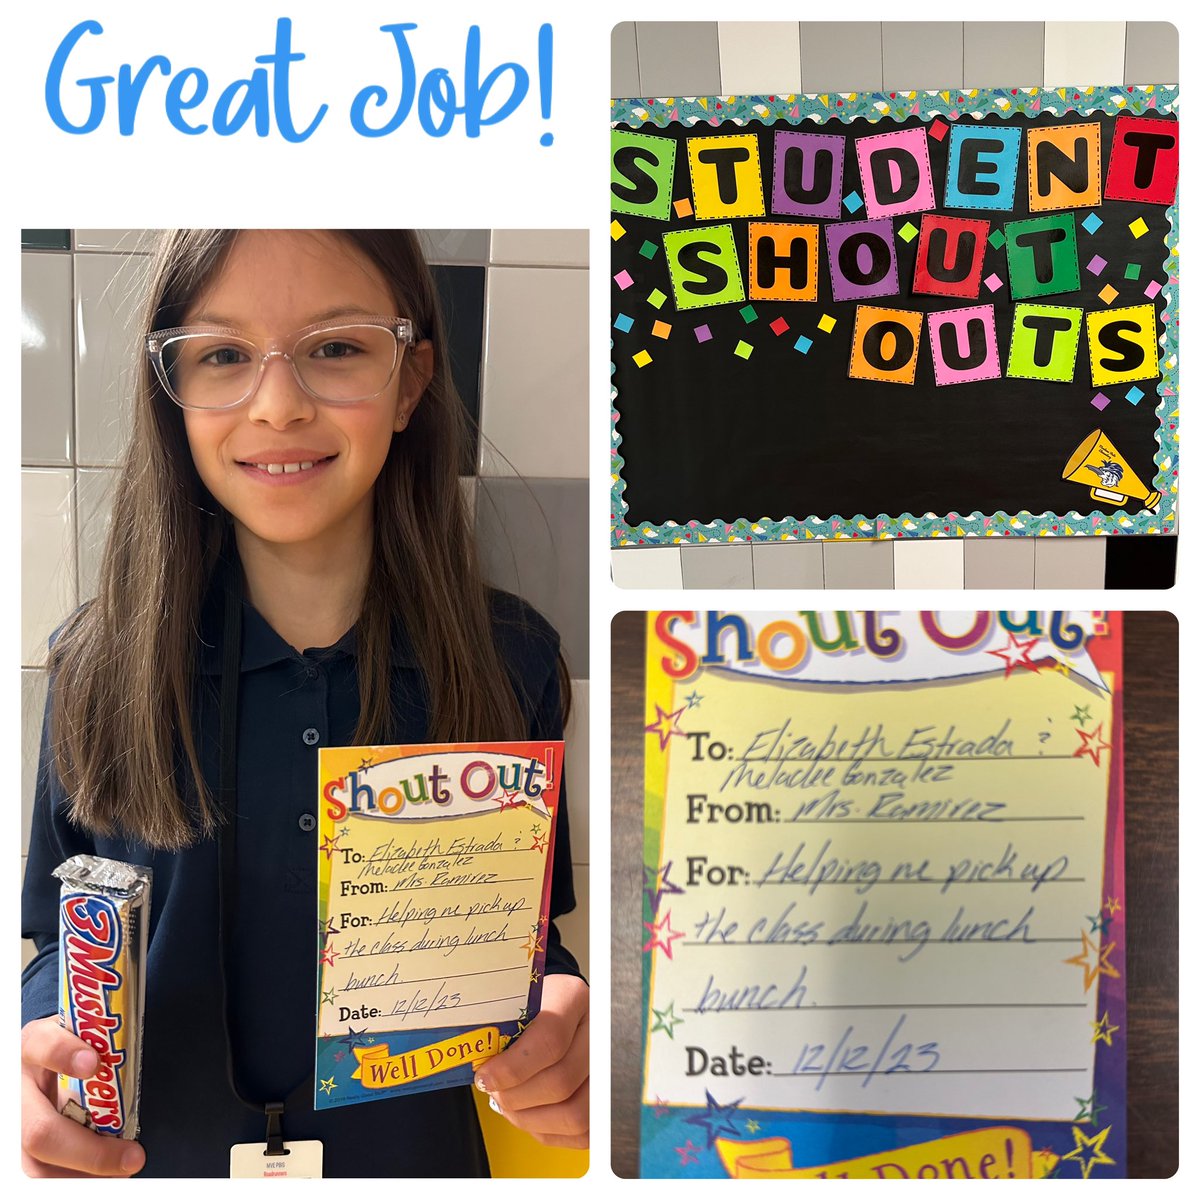 Great Job!
STUDENT
SHOUT
OUTS
3 Musketeers
Shout Out!
To: Elizabeth Estrada &
Meladee Gonzalez
From: Mrs. Ramirez
For: Helping me pick up
the class during lunch
bunch.
Date: 12/12/23
Well Done!
MVE PBIS
Roadrunners
Shout Out!
To: Elizabeth Estrada &
Meladee Gonzalez
From: Mrs. Ramirez
For: Helping me pick up
the class during lunch
bunch.
Date: 12/12/23
Well Done!